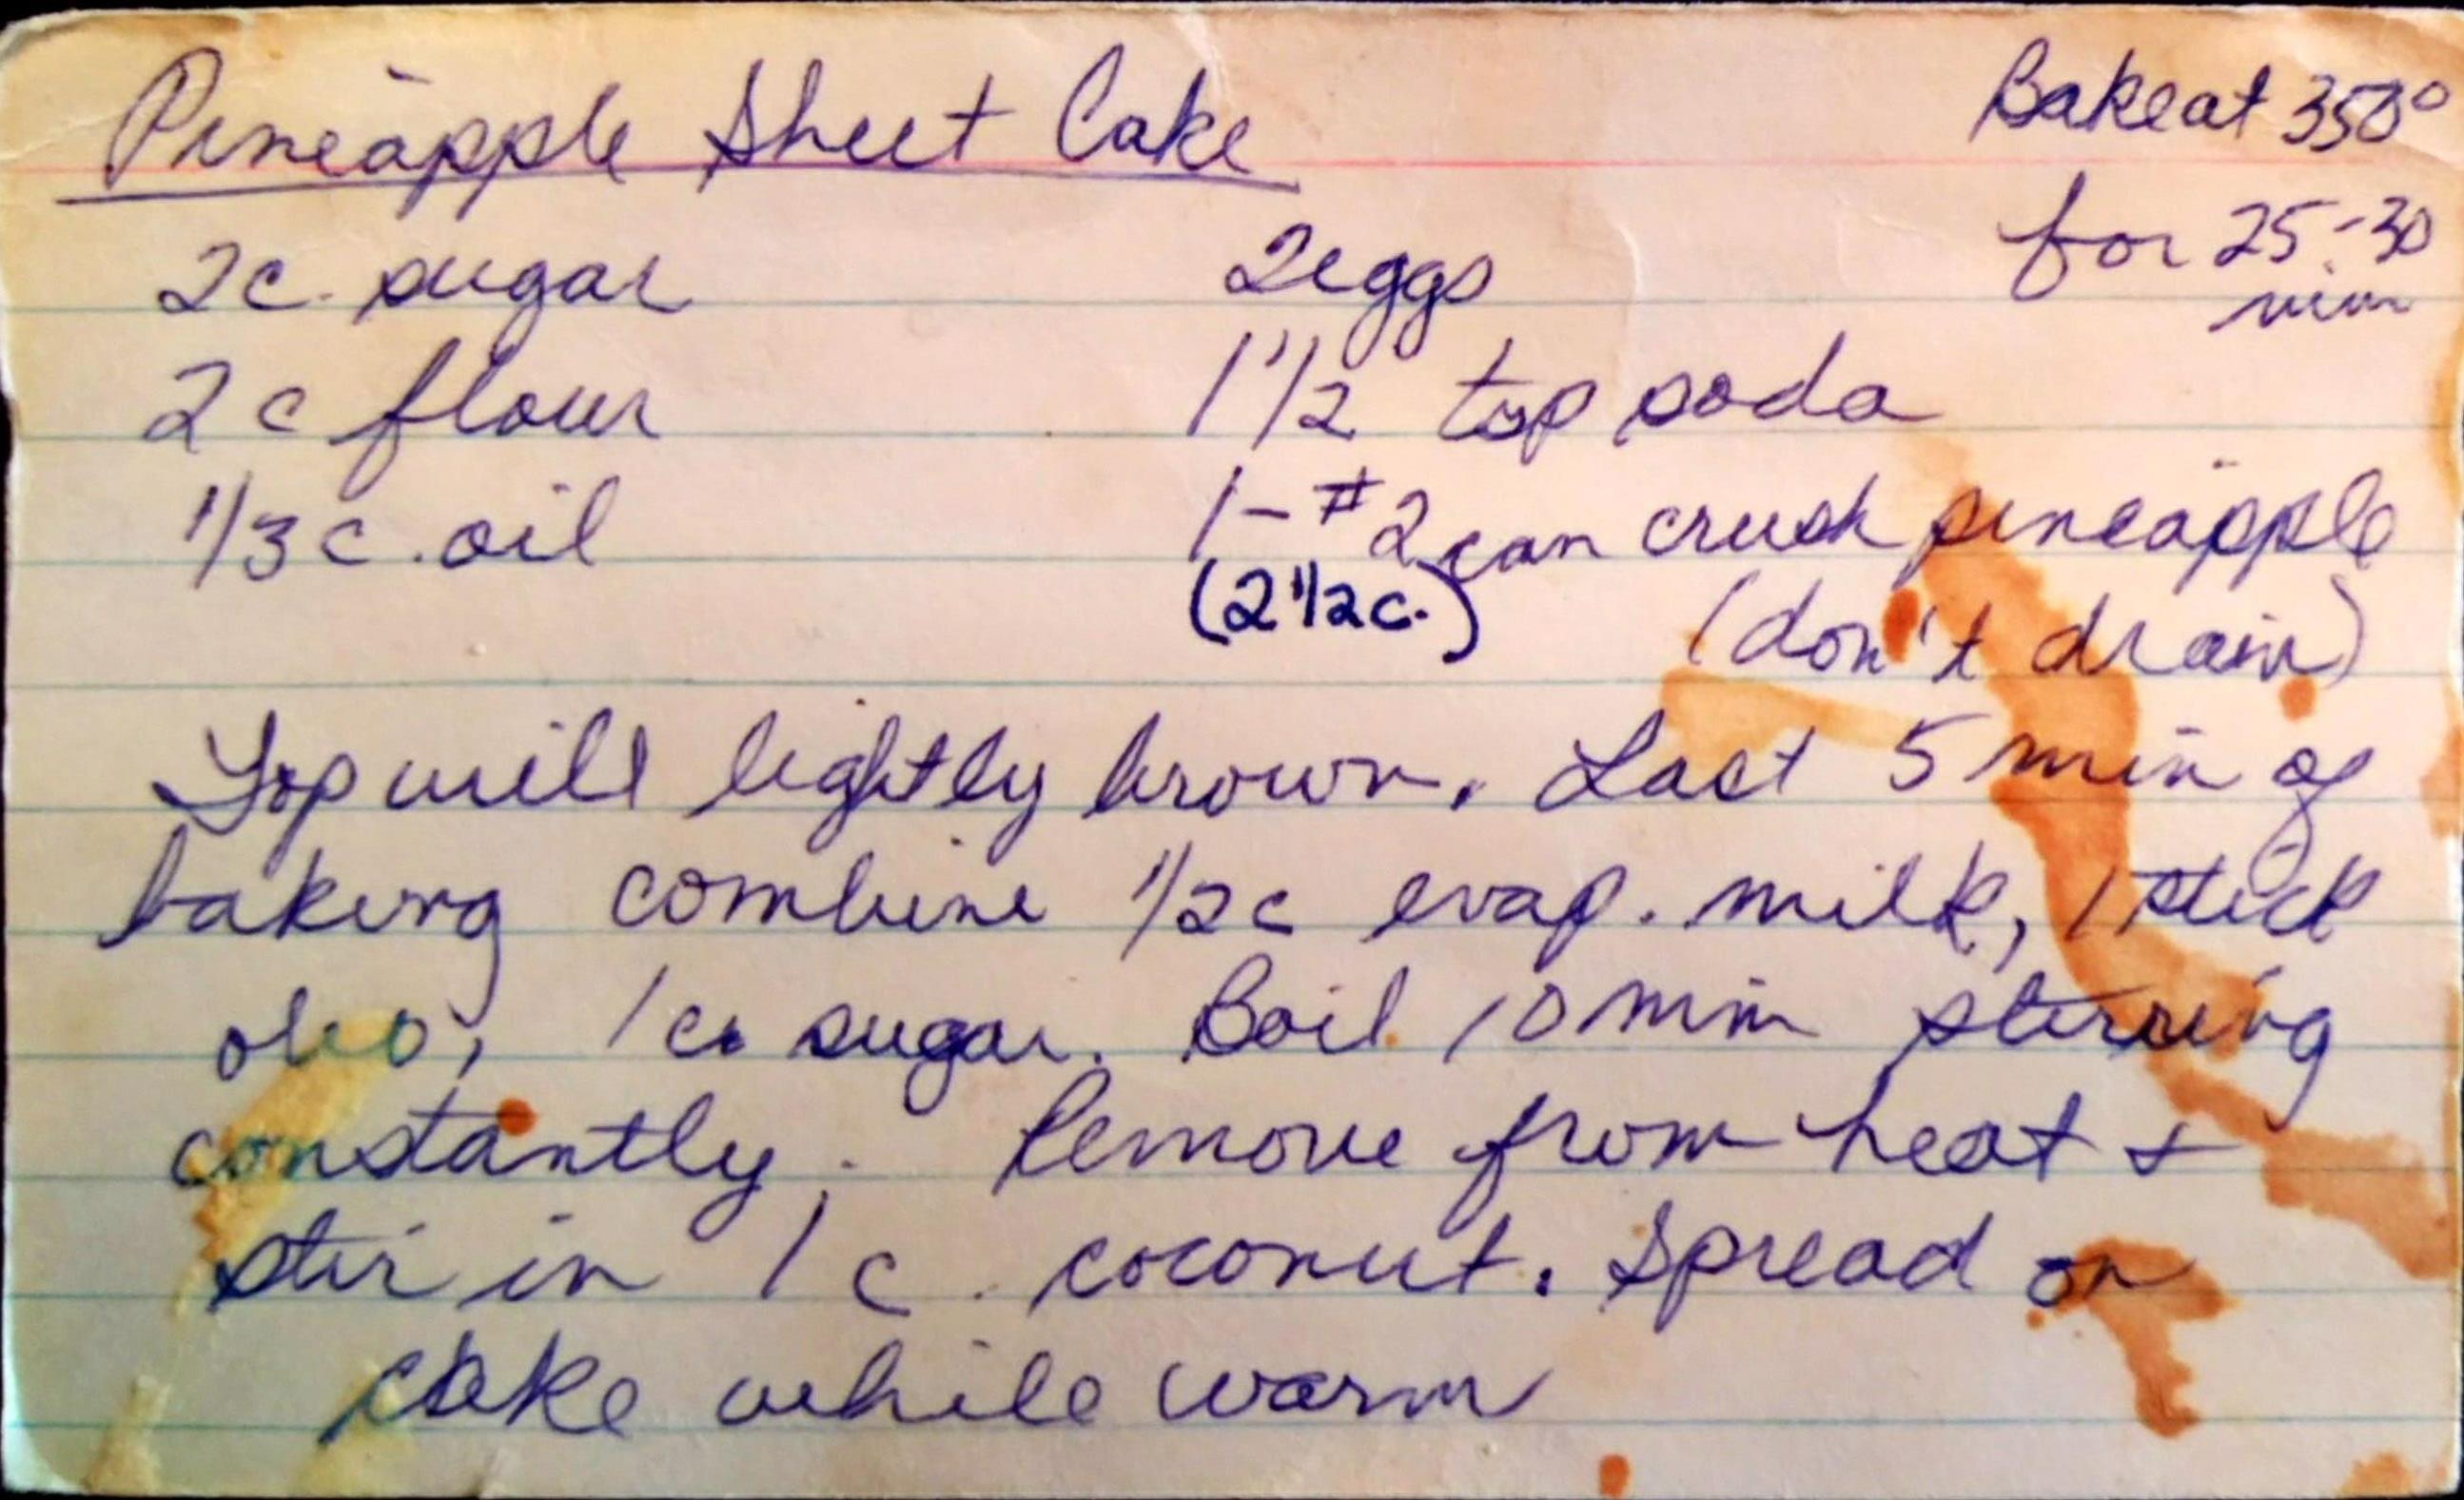 Pineapple Sheet Cake
Bake at 350°
for 25-30
min
2c. sugar
2 eggs
2 c flour
1 1/2 tsp soda
1/3 c. oil
1 - #2 can crush pineapple
(2 1/2 c.)
(don't drain)
Top will lightly brown. Last 5 min of
baking combine 1/2 c evap. milk, 1 stick
oleo, 1 c. sugar. Boil 10 min stirring
constantly. Remove from heat +
stir in 1 c. coconut. Spread on
cake while warm